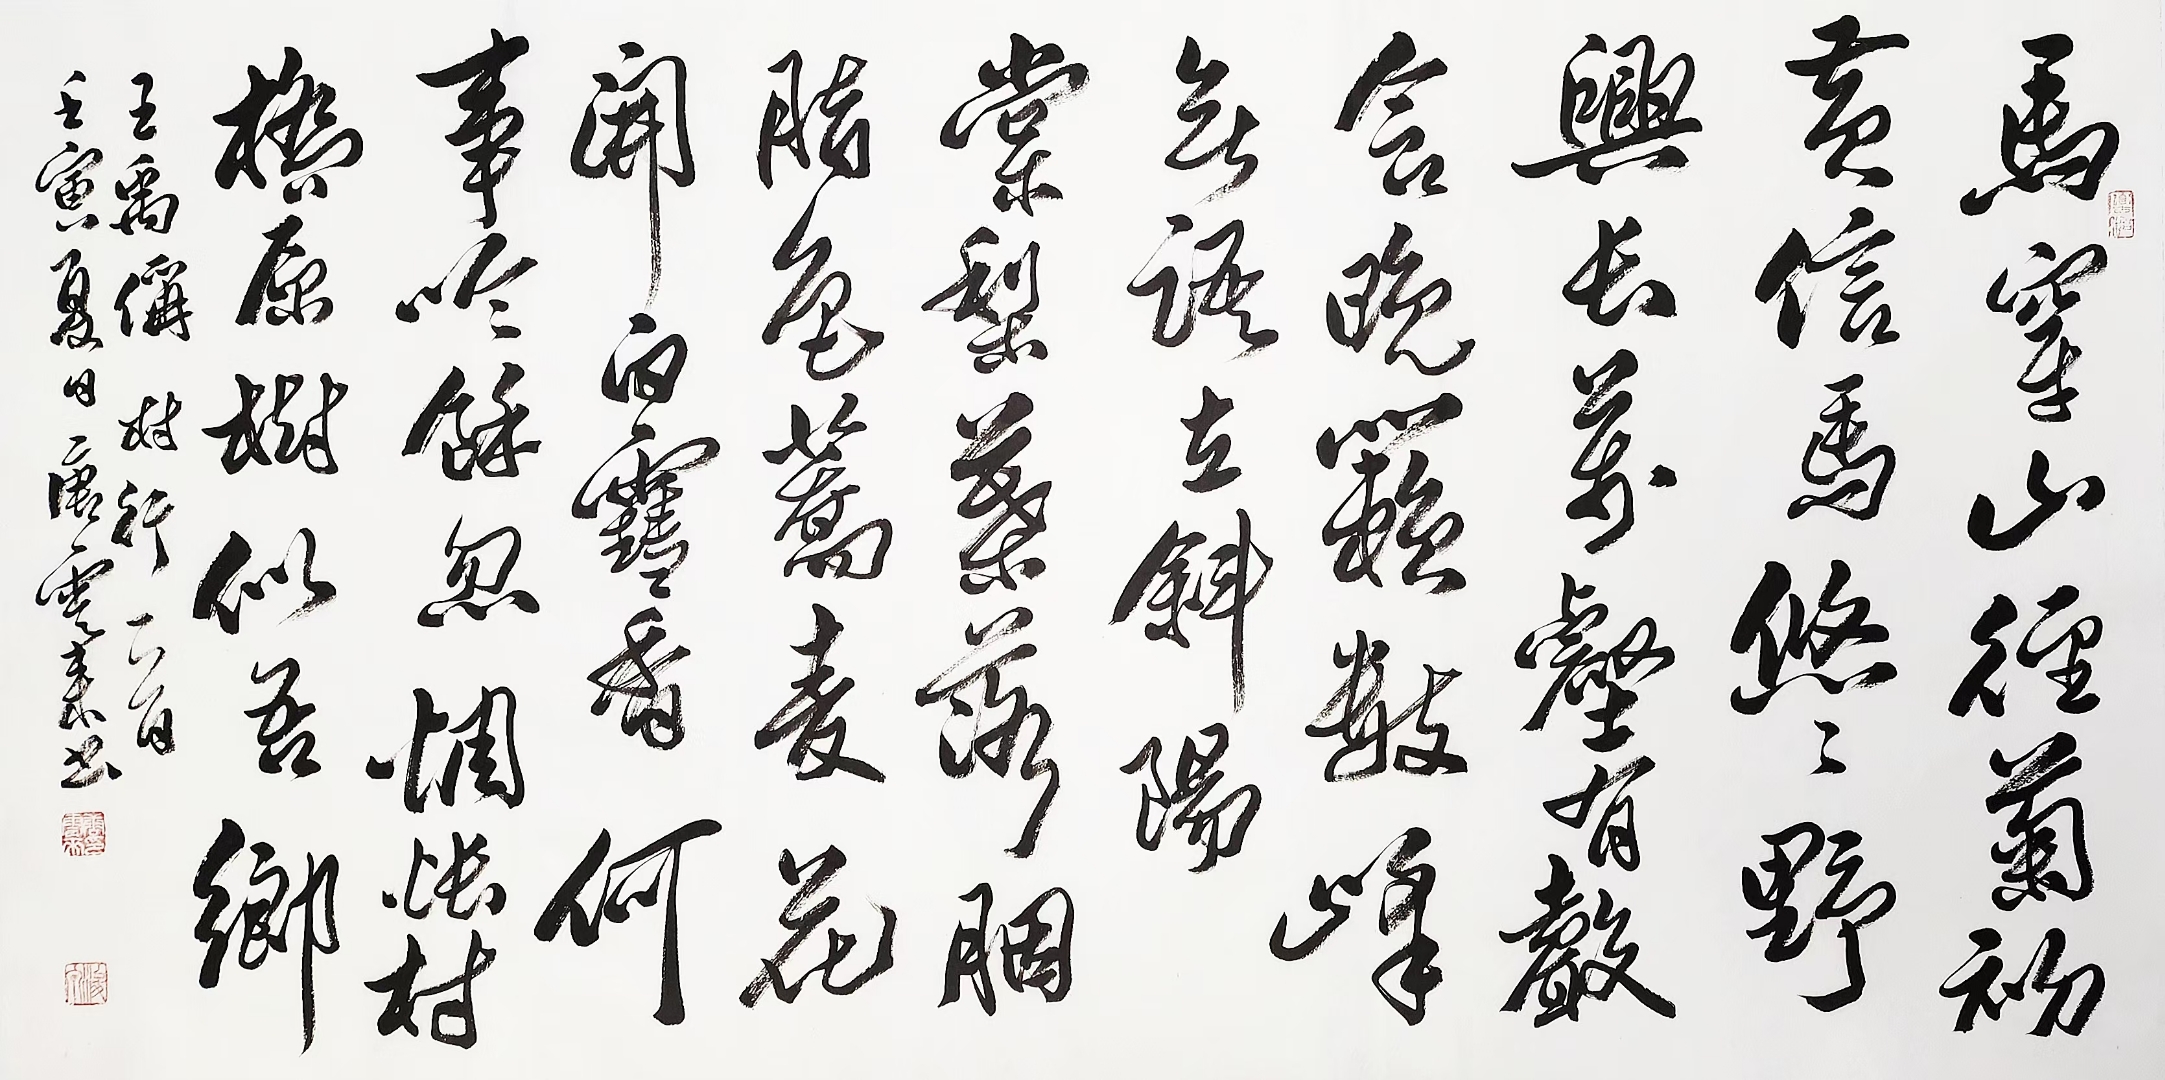 馬穿山徑菊初
黃信馬悠々野
興長萬壑有聲
含晚籟數峰
無語立斜陽
棠梨葉落胭
脂色蕎麥花
開白雪香何
事吟餘忽惆悵村
橋原樹似吾鄉
王禹偁村行一首
壬寅夏日唐雲来书